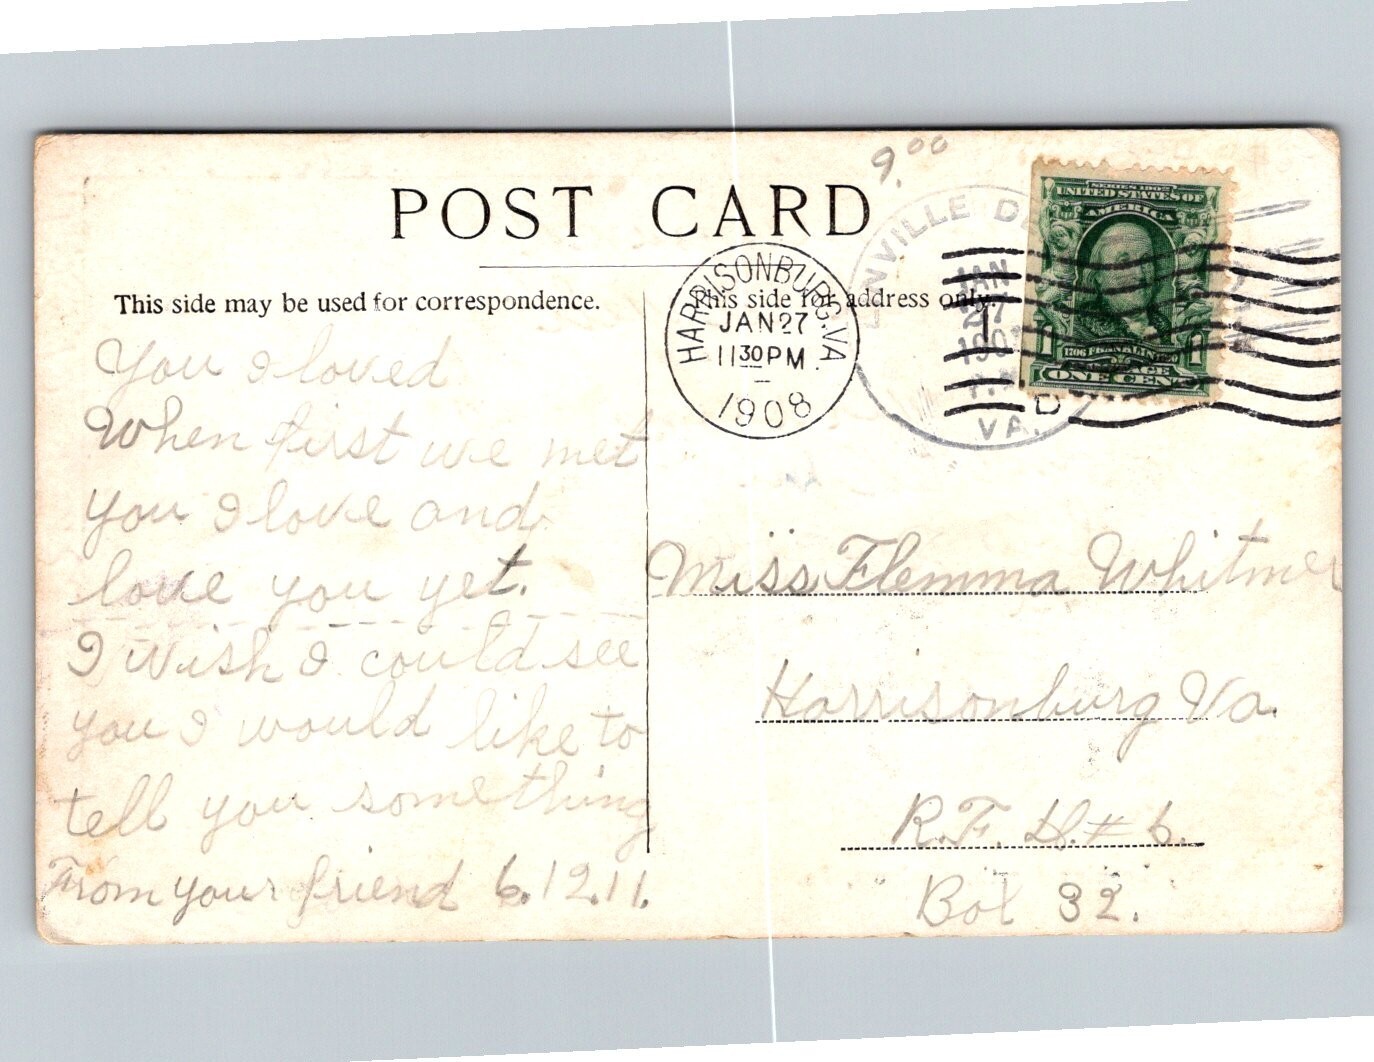 9.00
POST CARD
SERIES 1902
UNITED STATES OF
AMERICA
1706 FRANKLIN 1790
1 1
ONE CENT
HARRISONBURG, VA.
JAN 27
11 30 PM
1908
JAN
27
VA.
D
This side may be used for correspondence.
This side for address only.
You I loved
When first we met
you I love and
love you yet.
I wish I could see
you I would like to
tell you something
From your friend 6.12.11.
Miss Flemma Whitmer
Harrisonburg Va.
R.F. D. # 6.
Box 32.